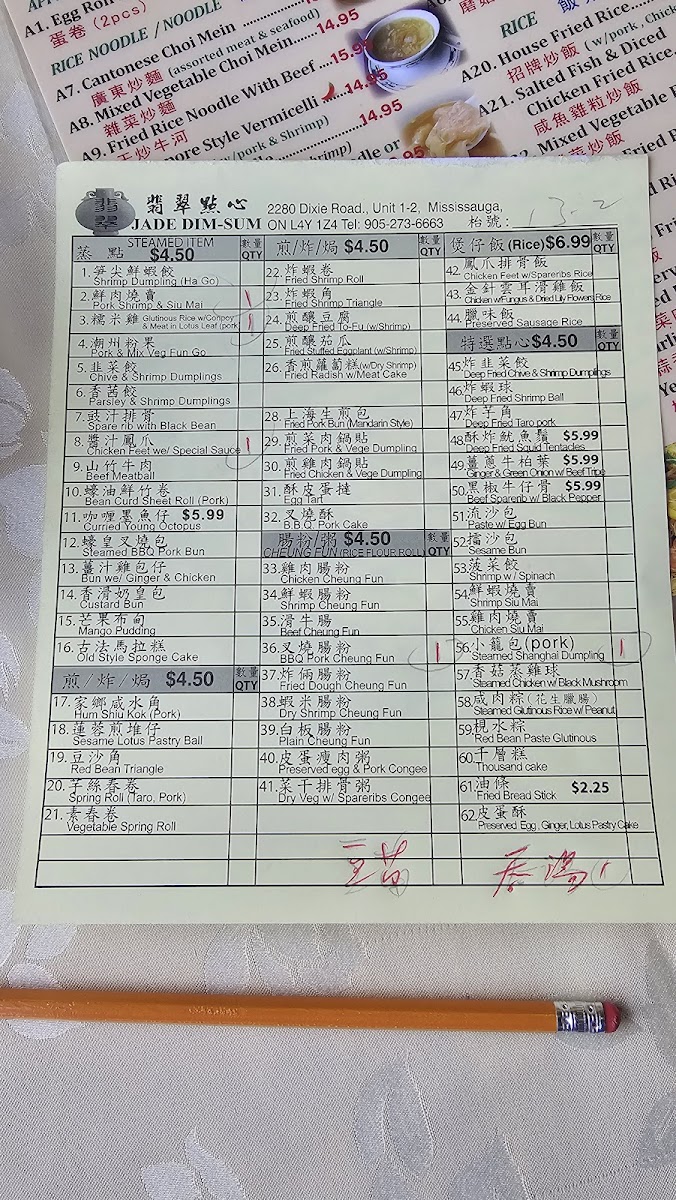 A1. Egg Ron
蛋卷 (2pcs)
RICE NOODLE / NOODLE
14.95
A7. Cantonese Choi Mein
廣東炒麵 (assorted meat & seafood)
14.95
A8. Mixed Vegetable Choi Mein
雜菜炒麵
15.95
A9. Fried Rice Noodle With Beef
干炒牛河
14.95
ore Style Vermicelli
14.95
w/pork & Shrimp)
RICE
A20. House Fried Rice
招牌炒飯 (w/pork, Chicken
A21. Salted Fish & Diced
Chicken Fried Rice
咸魚雞粒炒飯
Mixed Vegetable
菜炒飯
翡翠
翡翠點心
JADE DIM-SUM
2280 Dixie Road., Unit 1-2, Mississauga,
ON L4Y 1Z4 Tel: 905-273-6663
枱號: 13-2
蒸點 STEAMED ITEM $4.50 數量 QTY
1. 笋尖鮮蝦餃
Shrimp Dumpling (Ha Go)
2. 鮮肉燒賣 1
Pork Shrimp & Siu Mai
3. 糯米雞 Glutinous Rice w/Conpoy & Meat in Lotus Leaf (pork) 1
4. 潮州粉果
Pork & Mix Veg Fun Go
5. 韭菜餃
Chive & Shrimp Dumplings
6. 香茜餃
Parsley & Shrimp Dumplings
7. 豉汁排骨
Spare rib with Black Bean
8. 醬汁鳳爪 1
Chicken Feet w/ Special Sauce
9. 山竹牛肉
Beef Meatball
10. 蠔油鮮竹卷
Bean Curd Sheet Roll (Pork)
11. 咖喱墨魚仔 $5.99
Curried Young Octopus
12. 蠔皇叉燒包
Steamed BBQ Pork Bun
13. 薑汁雞包仔
Bun we/ Ginger & Chicken
14. 香滑奶皇包
Custard Bun
15. 芒果布甸
Mango Pudding
16. 古法馬拉糕
Old Style Sponge Cake
煎/炸/焗 $4.50 數量 QTY
17. 家鄉咸水角
Hum Shiu Kok (Pork)
18. 蓮蓉煎堆仔
Sesame Lotus Pastry Ball
19. 豆沙角
Red Bean Triangle
20. 芋絲春卷
Spring Roll (Taro, Pork)
21. 素春卷
Vegetable Spring Roll
煎/炸/焗 $4.50 數量 QTY
22. 炸蝦卷
Fried Shrimp Roll
23. 炸蝦角
Fried Shrimp Triangle
24. 煎釀豆腐
Deep Fried To-Fu (w/Shrimp)
25. 煎釀茄瓜
Fried Stuffed Eggplant (w/Shrimp)
26. 香煎蘿蔔糕(w/Dry Shrimp)
Fried Radish w/Meat Cake
28. 上海生煎包
Fried Pork Bun (Mandarin Style)
29. 煎菜肉鍋貼
Fried Pork & Vege Dumpling
30. 煎雞肉鍋貼
Fried Chicken & Vege Dumpling
31. 酥皮蛋撻
Egg Tart
32. 叉燒酥
B.B.Q. Pork Cake
腸粉/粥 $4.50 數量 QTY
CHEUNG FUN (RICE FLOUR ROLL)
33. 雞肉腸粉
Chicken Cheung Fun
34. 鮮蝦腸粉
Shrimp Cheung Fun
35. 滑牛腸
Beef Cheung Fun
36. 叉燒腸粉 1
BBQ Pork Cheung Fun
37. 炸倆腸粉
Fried Dough Cheung Fun
38. 蝦米腸粉
Dry Shrimp Cheung Fun
39. 白板腸粉
Plain Cheung Fun
40. 皮蛋瘦肉粥
Preserved egg & Pork Congee
41. 菜干排骨粥
Dry Veg w/ Spareribs Congee
煲仔飯 (Rice) $6.99 數量 QTY
42. 鳳爪排骨飯
Chicken Feet w/Spareribs Rice
43. 金針雲耳滑雞飯
Chicken w/Fungus & Dried Lily Flowers Rice
44. 臘味飯
Preserved Sausage Rice
特選點心 $4.50 數量 QTY
45. 炸韭菜餃
Deep Fried Chive & Shrimp Dumplings
46. 炸蝦球
Deep Fried Shrimp Ball
47. 炸芋角
Deep Fried Taro pork
48. 酥炸魷魚鬚 $5.99
Deep Fried Squid Tentacles
49. 薑蔥牛柏葉 $5.99
Ginger & Green Onion w/ Beef Tripe
50. 黑椒牛仔骨 $5.99
Beef Sparerib w/ Black Pepper
51. 流沙包
Paste w/ Egg Bun
52. 擂沙包
Sesame Bun
53. 菠菜餃
Shrimp w/ Spinach
54. 鮮蝦燒賣
Shrimp Siu Mai
55. 雞肉燒賣
Chicken Siu Mai
56. 小籠包(pork) 1
Steamed Shanghai Dumpling
57. 香菇蒸雞球
Steamed Chicken w/ Black Mushroom
58. 咸肉粽 (花生臘腸)
Steamed Glutinous Rice w/ Peanut
59. 梘水粽
Red Bean Paste Glutinous
60. 千層糕
Thousand cake
61. 油條 $2.25
Fried Bread Stick
62. 皮蛋酥
Preserved Egg, Ginger, Lotus Pastry Cake
豆苗